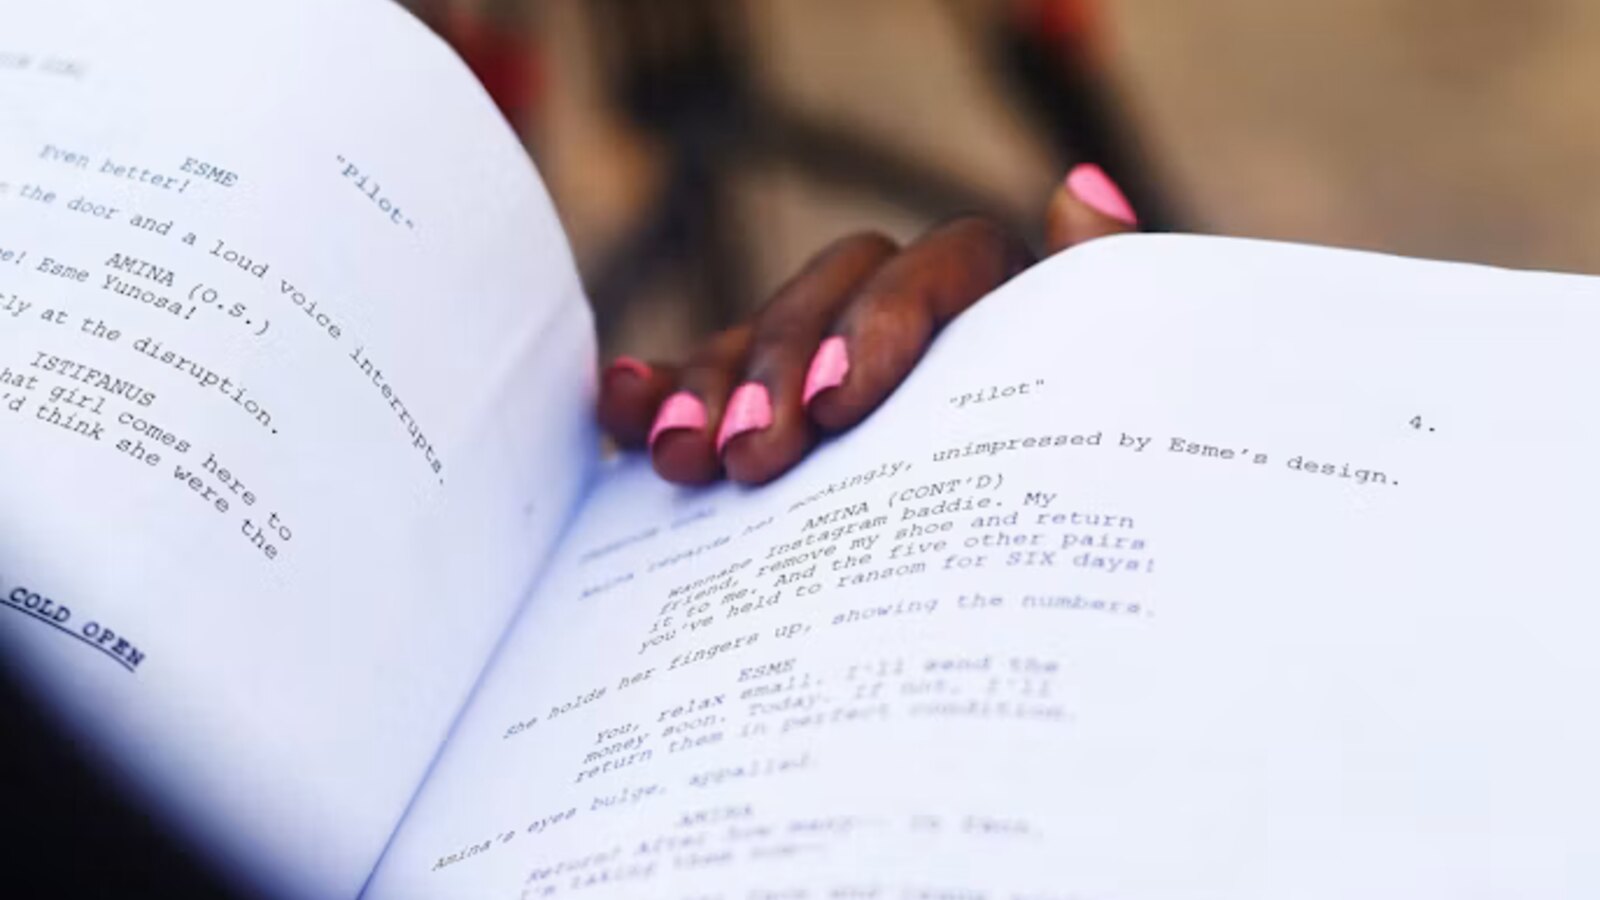 "Pilot"
ESME
Even better!
the door and a loud voice interrupts.
AMINA (O.S.)
Esme Yunosa!
at the disruption.
ISTIFANUS
girl comes here to
'd think she were the
COLD OPEN
"Pilot"
4.
Amina regards her mockingly, unimpressed by Esme's design.
AMINA (CONT'D)
Wannabe Instagram baddie. My
friend, remove my shoe and return
it to me. And the five other pairs
you've held to ransom for SIX days!
She holds her fingers up, showing the numbers.
ESME
You, relax small. I'll send the
money soon. Today. If not, I'll
return them in perfect condition.
Amina's eyes bulge, appalled.
AMINA
Return? After how many--
I'm taking them now--